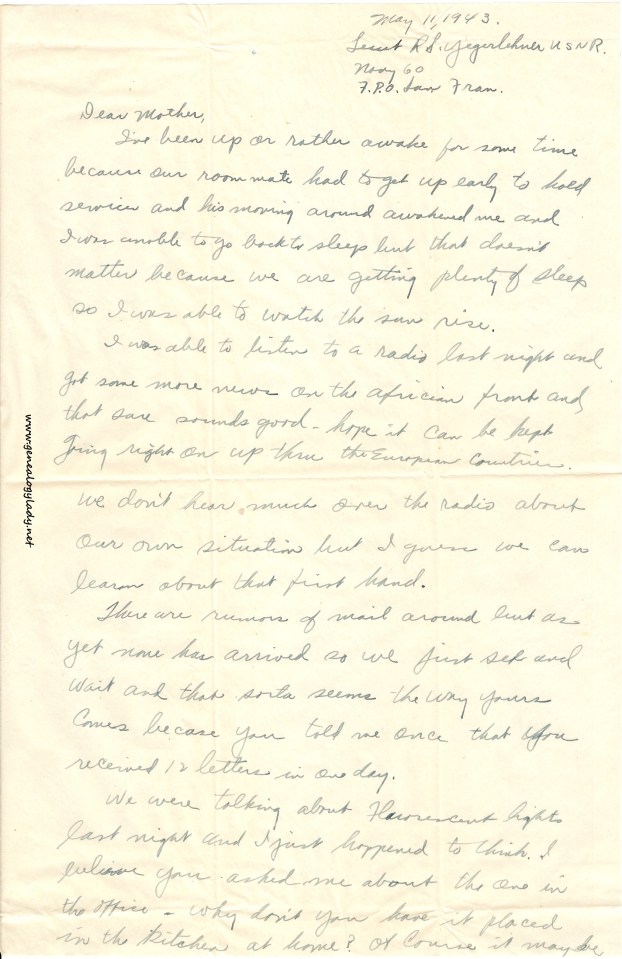 May 11, 1943.
Lieut R.S. Yegerlehner USNR.
Navy 60
F.P.O. San Fran.
Dear Mother,
I've been up or rather awake for some time
because our roommate had to get up early to hold
service and his moving around awakened me and
I was unable to go back to sleep but that doesn't
matter because we are getting plenty of sleep
so I was able to watch the sun rise.
I was able to listen to a radio last night and
got some more news on the african front and
that sure sounds good - hope it can be kept
going right on up thru the European Countries.
We don't hear much over the radio about
our own situation but I guess we can
learn about that first hand.
There are rumors of mail around but as
yet none has arrived so we just set and
wait and that sorta seems the way yours
comes becase you told me once that you
received 12 letters in one day.
We were talking about Flourescent lights
last night and I just happened to think. I
believe you asked me about the one in
the office - why don't you have it placed
in the kitchen at home? Of Course it may be
www.genealogylady.net